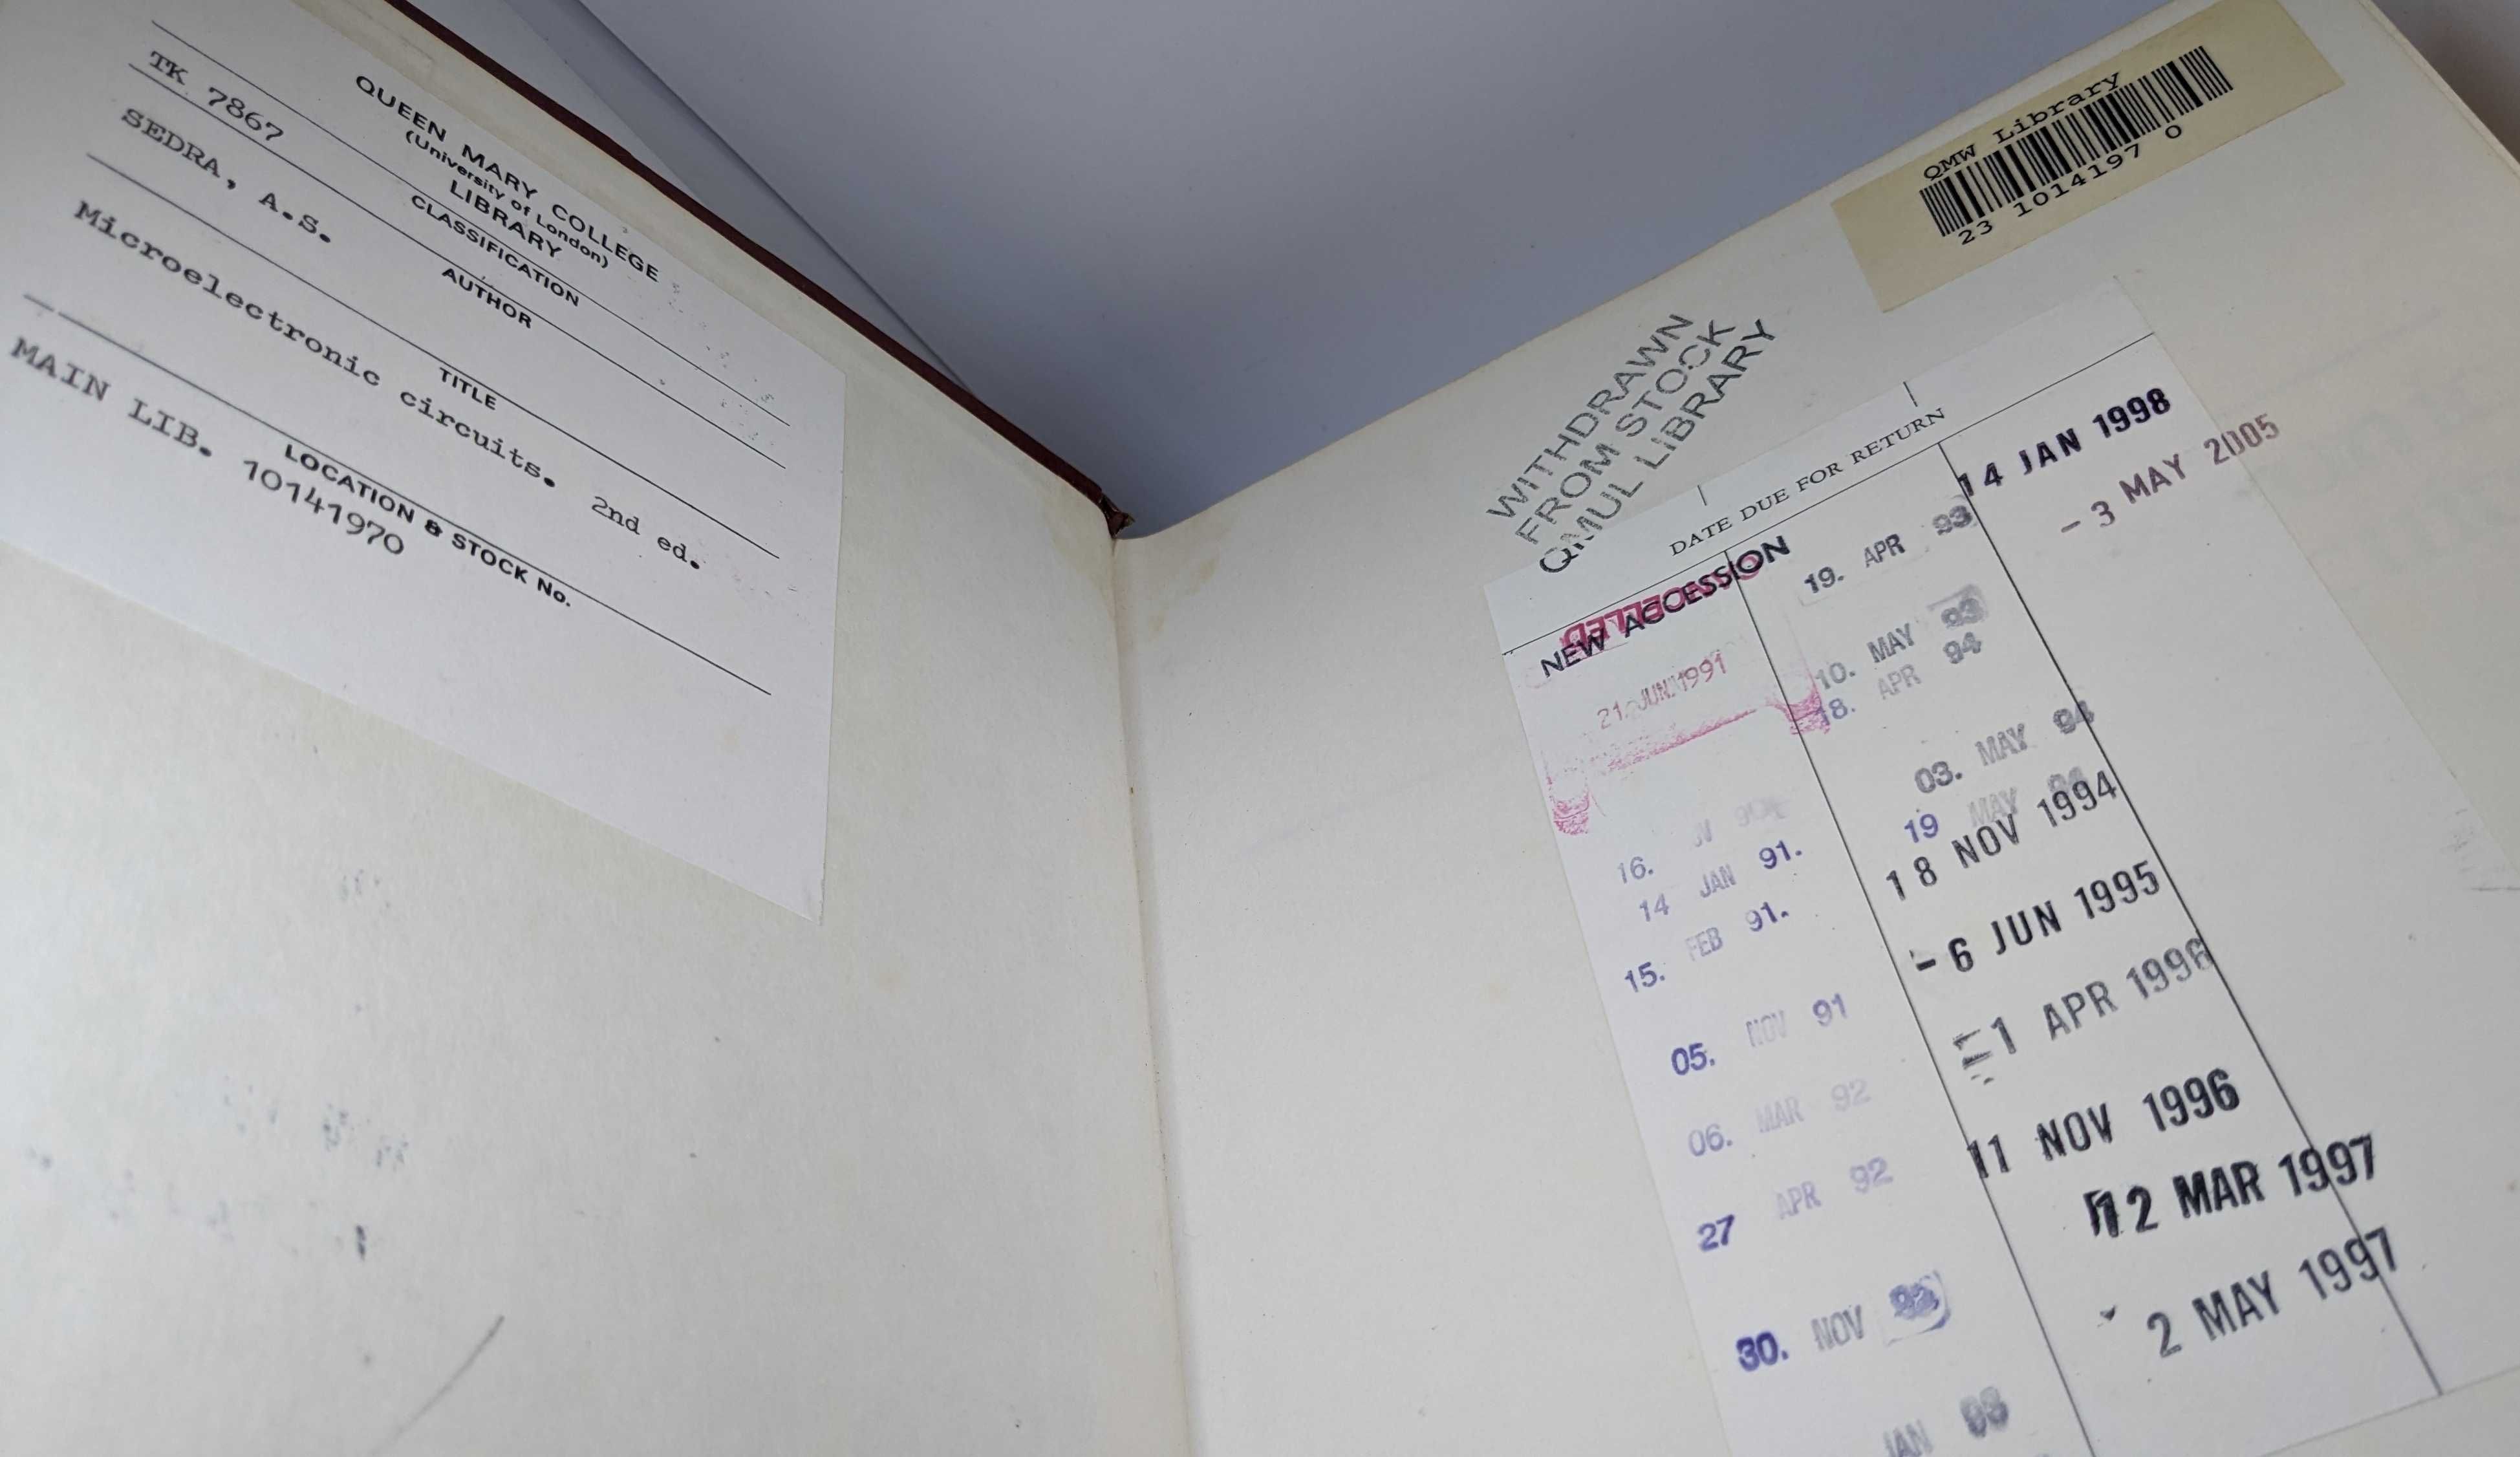 QUEEN MARY COLLEGE
(University of London)
LIBRARY
CLASSIFICATION
TK 7867
AUTHOR
SEDRA, A.S.
TITLE
Microelectronic circuits. 2nd ed.
LOCATION & STOCK No.
MAIN LIB. 10141970
QMW Library
23 1014197 0
WITHDRAWN
FROM STOCK
QMUL LIBRARY
DATE DUE FOR RETURN
NEW ACCESSION
21. JUN 1991
16.
14 JAN 91.
15. FEB 91.
05. NOV 91
06. MAR 92
27 APR 92
30. NOV
JAN 93
19. APR 93
10. MAY 93
18. APR 94
03. MAY 94
19 MAY 94
18 NOV 1994
- 6 JUN 1995
1 APR 1996
11 NOV 1996
12 MAR 1997
2 MAY 1997
14 JAN 1998
- 3 MAY 2005